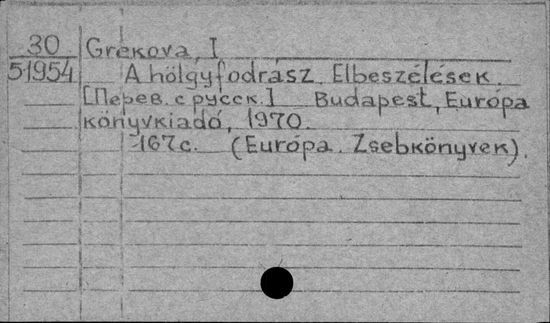 30 Grekova, I
51954 A hölgyfodrász. Elbeszélések.
[Перев. с русск.] Budapest, Európa
könyvkiadó, 1970.
167с. (Európa. Zsebkönyvek).